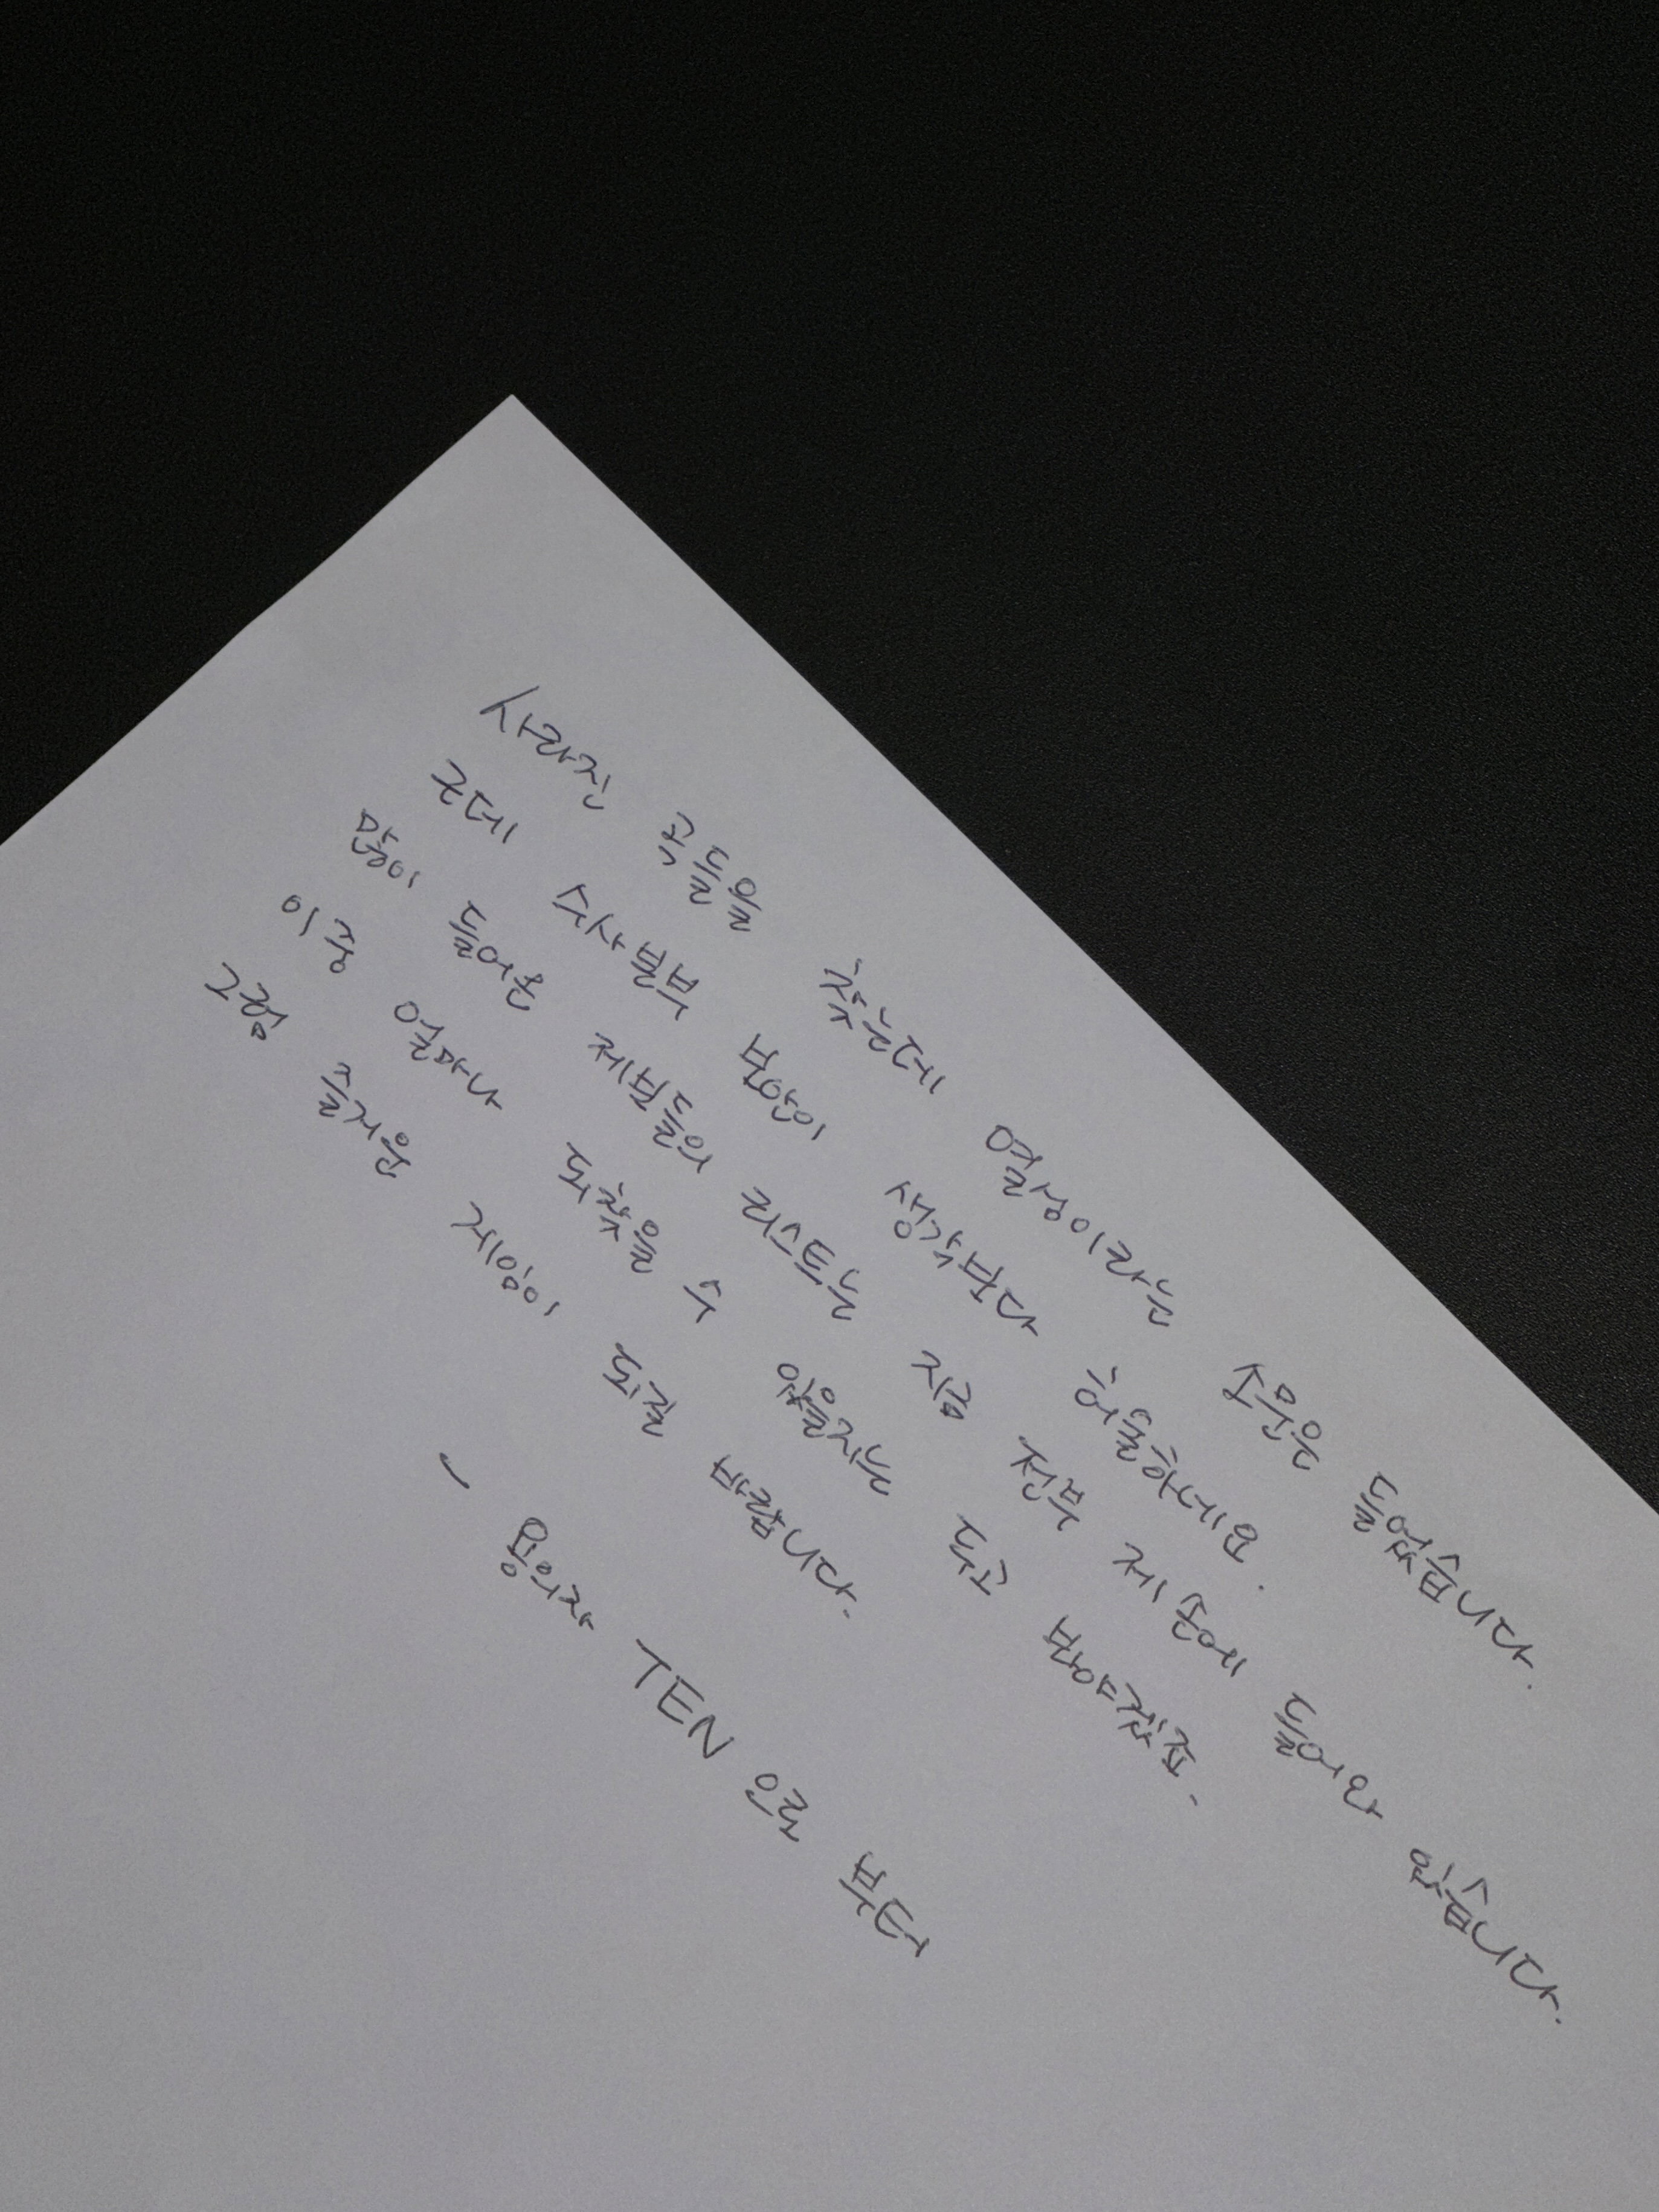 사라진 것들을 찾는데 열정이라는 소문은 들었습니다.
근데 수사본부 보안이 생각보다 허술하네요.
들어온 루트는 지금 전부 제 손에 들어와 있습니다.
이 중 얼마나 되찾을 수 있을지는 두고 봐야겠죠.
그럼 즐거운 게임이 되길 바랍니다.
- 용의자 TEN 으로 부터